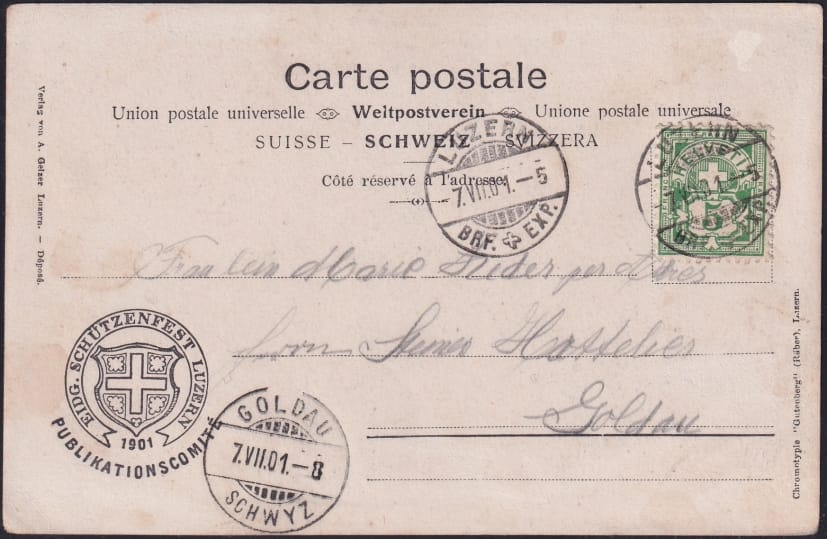 Carte postale
Union postale universelle Weltpostverein Unione postale universale
SUISSE – SCHWEIZ – SVIZZERA
Côté réservé à l'adresse
LUZERN
7.VII.01.–5
BRF. EXP.
LUZERN
HELVETIA
EXP.
Fräulein Marie
Herrn Hotelier
Goldau
EIDG. SCHÜTZENFEST LUZERN
1901
PUBLIKATIONSCOMITÉ
GOLDAU
7.VII.01.–8
SCHWYZ
Verlag von A. Gelzer Luzern. — Déposé.
Chromotypie "Gutenberg" (Räber), Luzern.